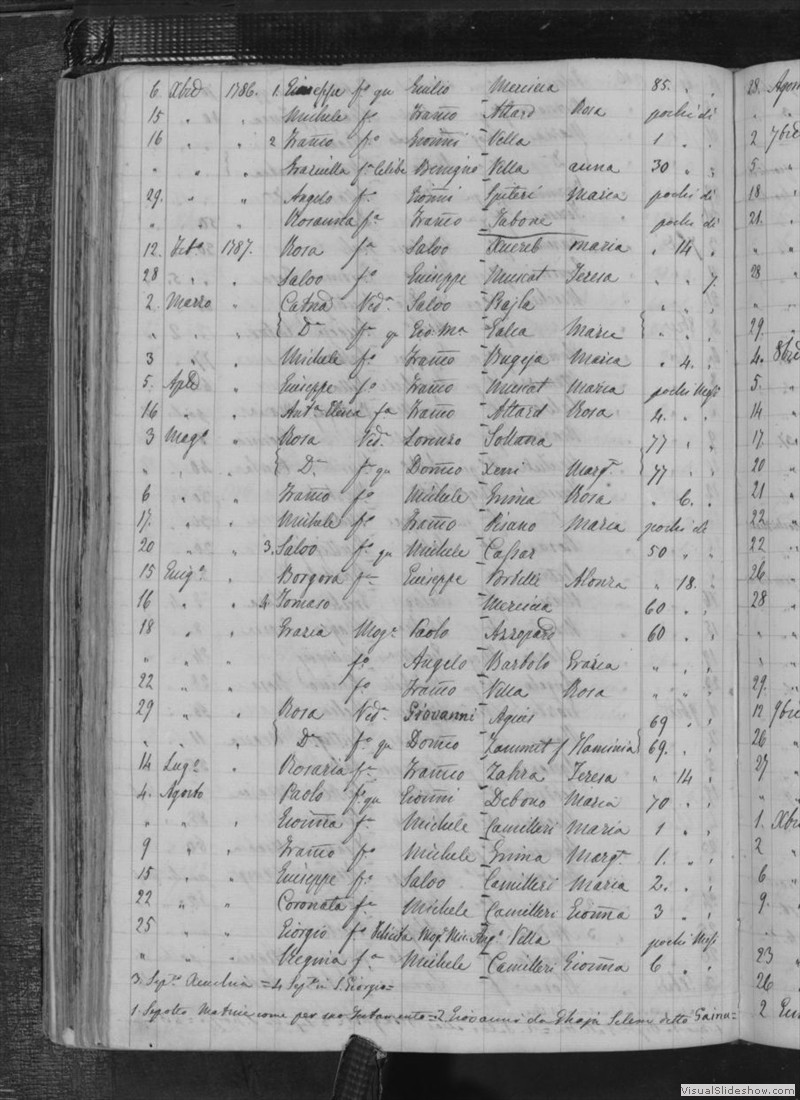 6 Xbre 1786. 1. Giuseppe fo qu Giulio Mercieca 85. " "
15 " " Michele fo Franco Attard Rosa pochi di
16 " " 2 Franco fo Gionni Vella 1 " "
" " " Graziella fa Celibe Benigno Vella anna 30 " "
29. " " Angelo fo Gionni Spiteri Maria pochi di
" " " Rosanna fa Franco Tabone pochi di
12. Feb. 1787. Rosa fa Salvo Xuereb maria " 14 "
28 " " Salvo fo Giuseppe Muscat Teresa " " 7.
2. Marzo " Catna Veda Salvo Bajla
" " " Da fa qu Gio Ma Galea Maria " " "
3 " " Michele fo Franco Bugeja Maria " 4. "
5. Aple " Giuseppe fo Franco Muscat Maria pochi Mesi
16 " " Anta fa Franco Attard Rosa 4. " "
3 Mago " Rosa Veda Lorenzo Soltana 77 " "
" " " Da fa qu Domco Xerri Margta 77 " "
6 " " Franco fo Michele Grima Rosa " 6. "
17. " " Michele fo Franco Pisano Maria pochi di
20 " " 3. Salvo fo qu Michele Cassar 50 " "
15 Giugo " fa Giuseppe Portelli " 18. "
16 " " 4 Tomaso Mercieca 60 " "
18 " " Grazia Moge Paolo Azzopardi 60 " "
" " " fo Angelo Bartolo Grazia " " "
22 " " fo Franco Vella Rosa " " "
29 " " Rosa Veda Giovanni Agius 69 " "
" " " Da fa qu Domco Zammit Flaminia 69. " "
14 Lugo " Rosaria fa Franco Zahra Teresa " 14 "
4. Agosto " Paolo fo qu Gionni Debono Maria 70 " "
" " " Gionna fa Michele Camilleri Maria 1 " "
9 " " Franco fo Michele Grima Margta 1. " "
15 " " Giuseppe fo Salvo Camilleri Maria 2. " "
22 " " Coronata fa Michele Camilleri Gionna 3 " "
25 " " Giorgio fo Felicita Moge Vella pochi Mesi
" " " Virginia fa Michele Camilleri Gionna 6 " "
3. Sepo = 4 Sepo in S. Giorgio =
1 Sepolto Matrice come per suo testamento = 2 Giovanni da Dhaja Selem detto Gainu =
28. Agos
2 7bre
5.
18
21.
28
29.
4. 8bre
5.
14
17.
20
21
22
22
26
28
29.
12 9bre
26
27
1. Xbre
2
6
9.
23
26
2
VisualSlideshow.com